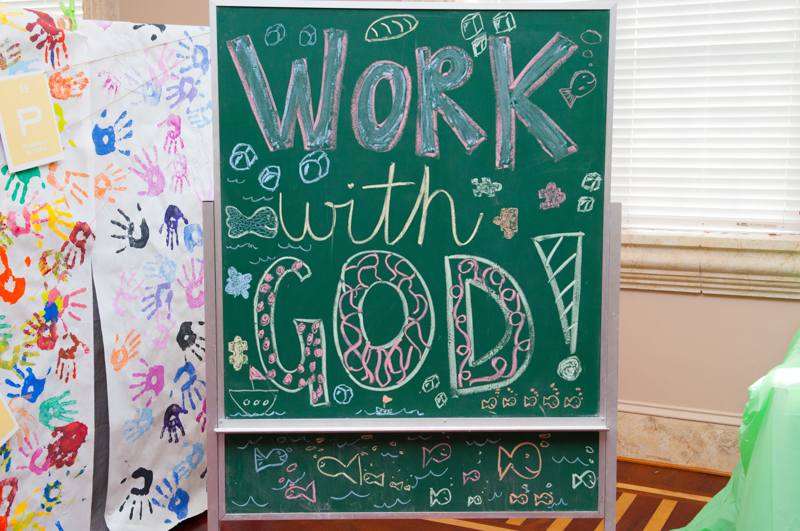 WORK
with
GOD!
P